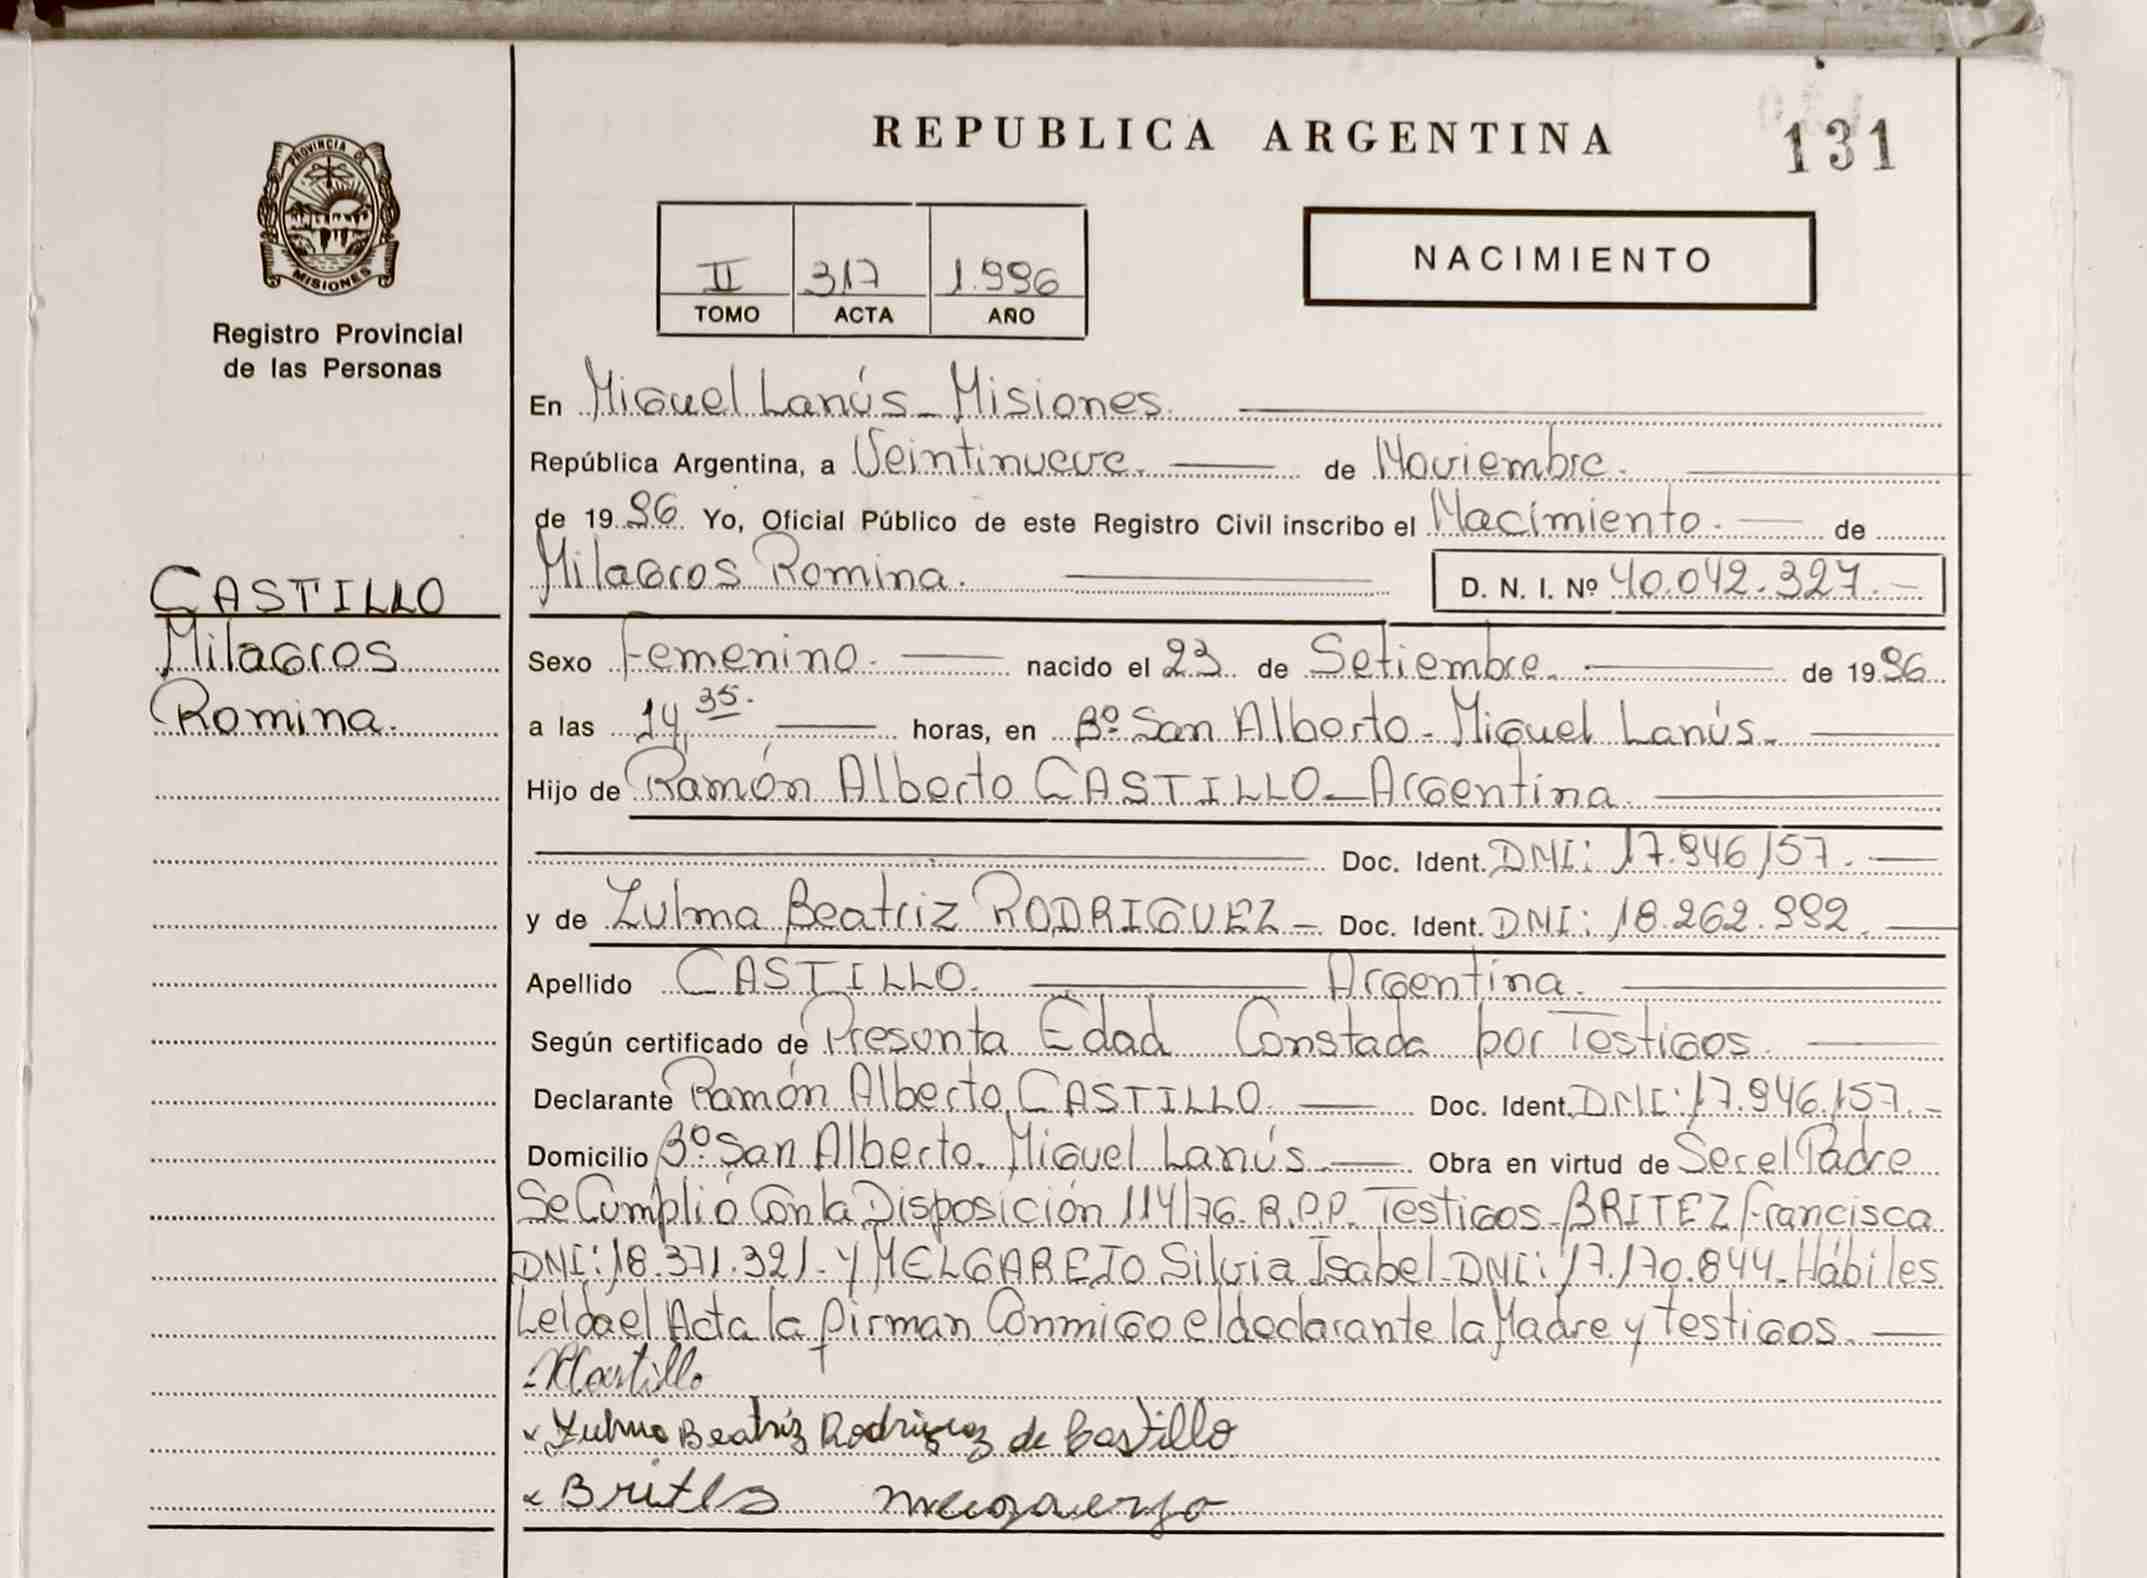 REPUBLICA ARGENTINA
131
PROVINCIA DE
MISIONES
Registro Provincial
de las Personas
II 317 1.996
TOMO ACTA AÑO
NACIMIENTO
En Miguel Lanús - Misiones
República Argentina, a Veintinueve. de Noviembre.
de 1996 Yo, Oficial Público de este Registro Civil inscribo el Nacimiento. de
Milagros Romina. D. N. I. Nº 40.042.327.-
CASTILLO
Milagros
Romina.
Sexo Femenino. nacido el 23 de Setiembre. de 1996
a las 14,35. horas, en Bº San Alberto - Miguel Lanús.
Hijo de Ramón Alberto CASTILLO - Argentina
Doc. Ident. DNI: 17.946.157.
y de Zulma Beatriz RODRIGUEZ - Doc. Ident. DNI: 18.262.992.
Apellido CASTILLO. Argentina.
Según certificado de Presunta Edad Constada por Testigos.
Declarante Ramón Alberto CASTILLO. Doc. Ident. DNI: 17.946.157.-
Domicilio Bº San Alberto. Miguel Lanús. Obra en virtud de Ser el Padre
Se Cumplió Con la Disposición 114/76. R.P.P. Testigos - BRITEZ Francisca
DNI: 18.371.321. Y MELGAREJO Silvia Isabel - DNI: 17.170.844 - Hábiles
Leída el Acta la firman Conmigo el declarante la Madre y testigos.
Castillo
x Zulma Beatriz Rodriguez de Castillo
x Brites